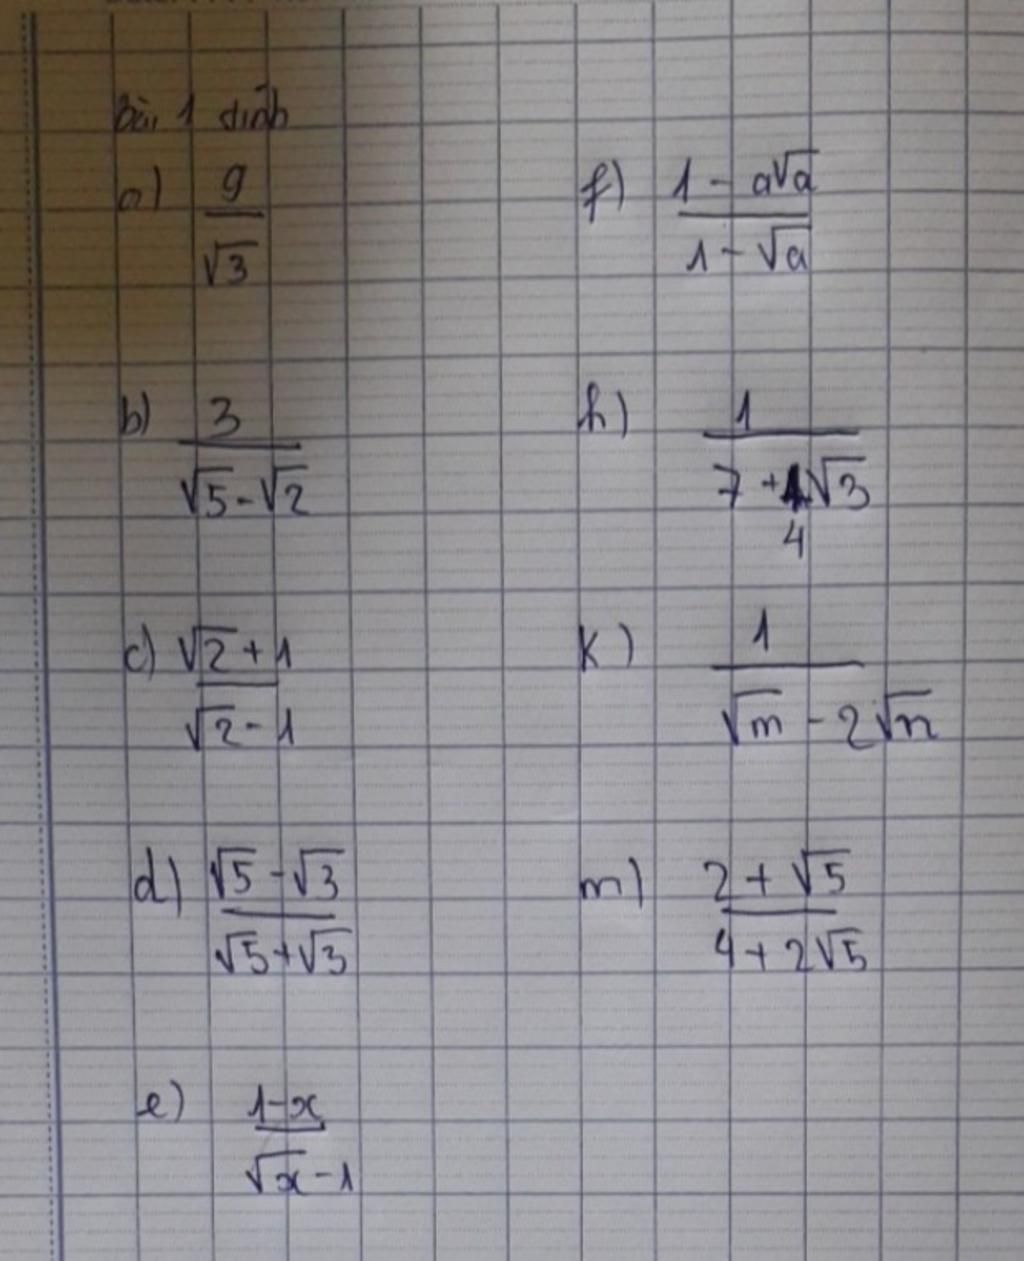 bài 1 tính
a) 9/√3
b) 3/(√5-√2)
c) (√2+1)/(√2-1)
d) (√5-√3)/(√5+√3)
e) (1-x)/(√x-1)
f) (1-a√a)/(1-√a)
h) 1/(7+4√3)
k) 1/(√m-2√n)
m) (2+√5)/(4+2√5)